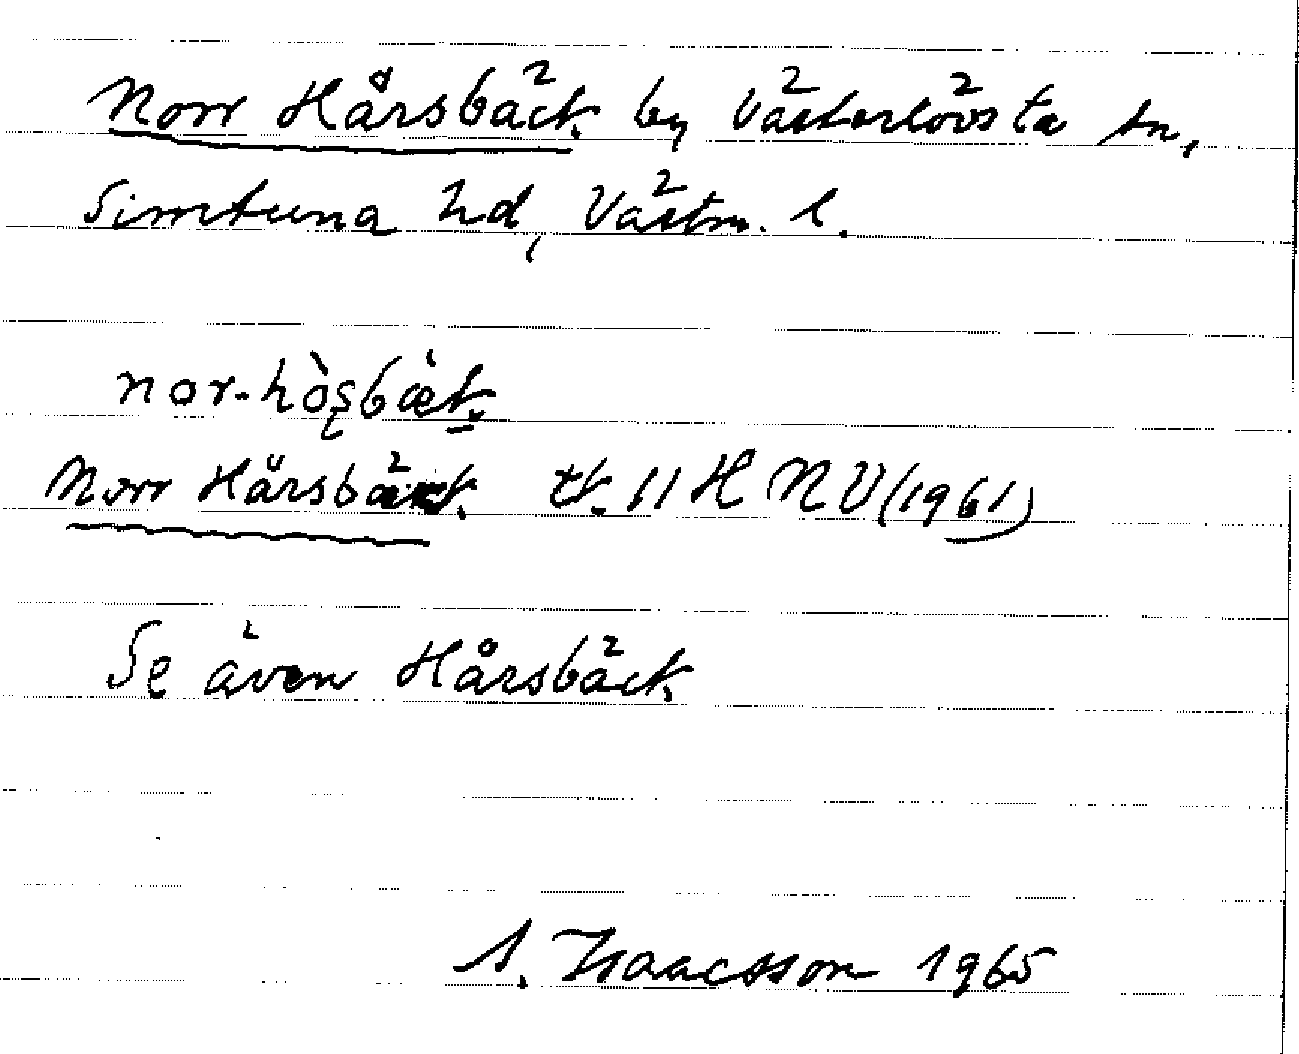 Norr Hårsbäck by Västerlövsta sn,
Simtuna hd, Västm. l.
nor-hòʂbæ̀k
Norr Hårsbäck tk. 11 H NV (1961)
Se även Hårsbäck
S. Isaacsson 1965